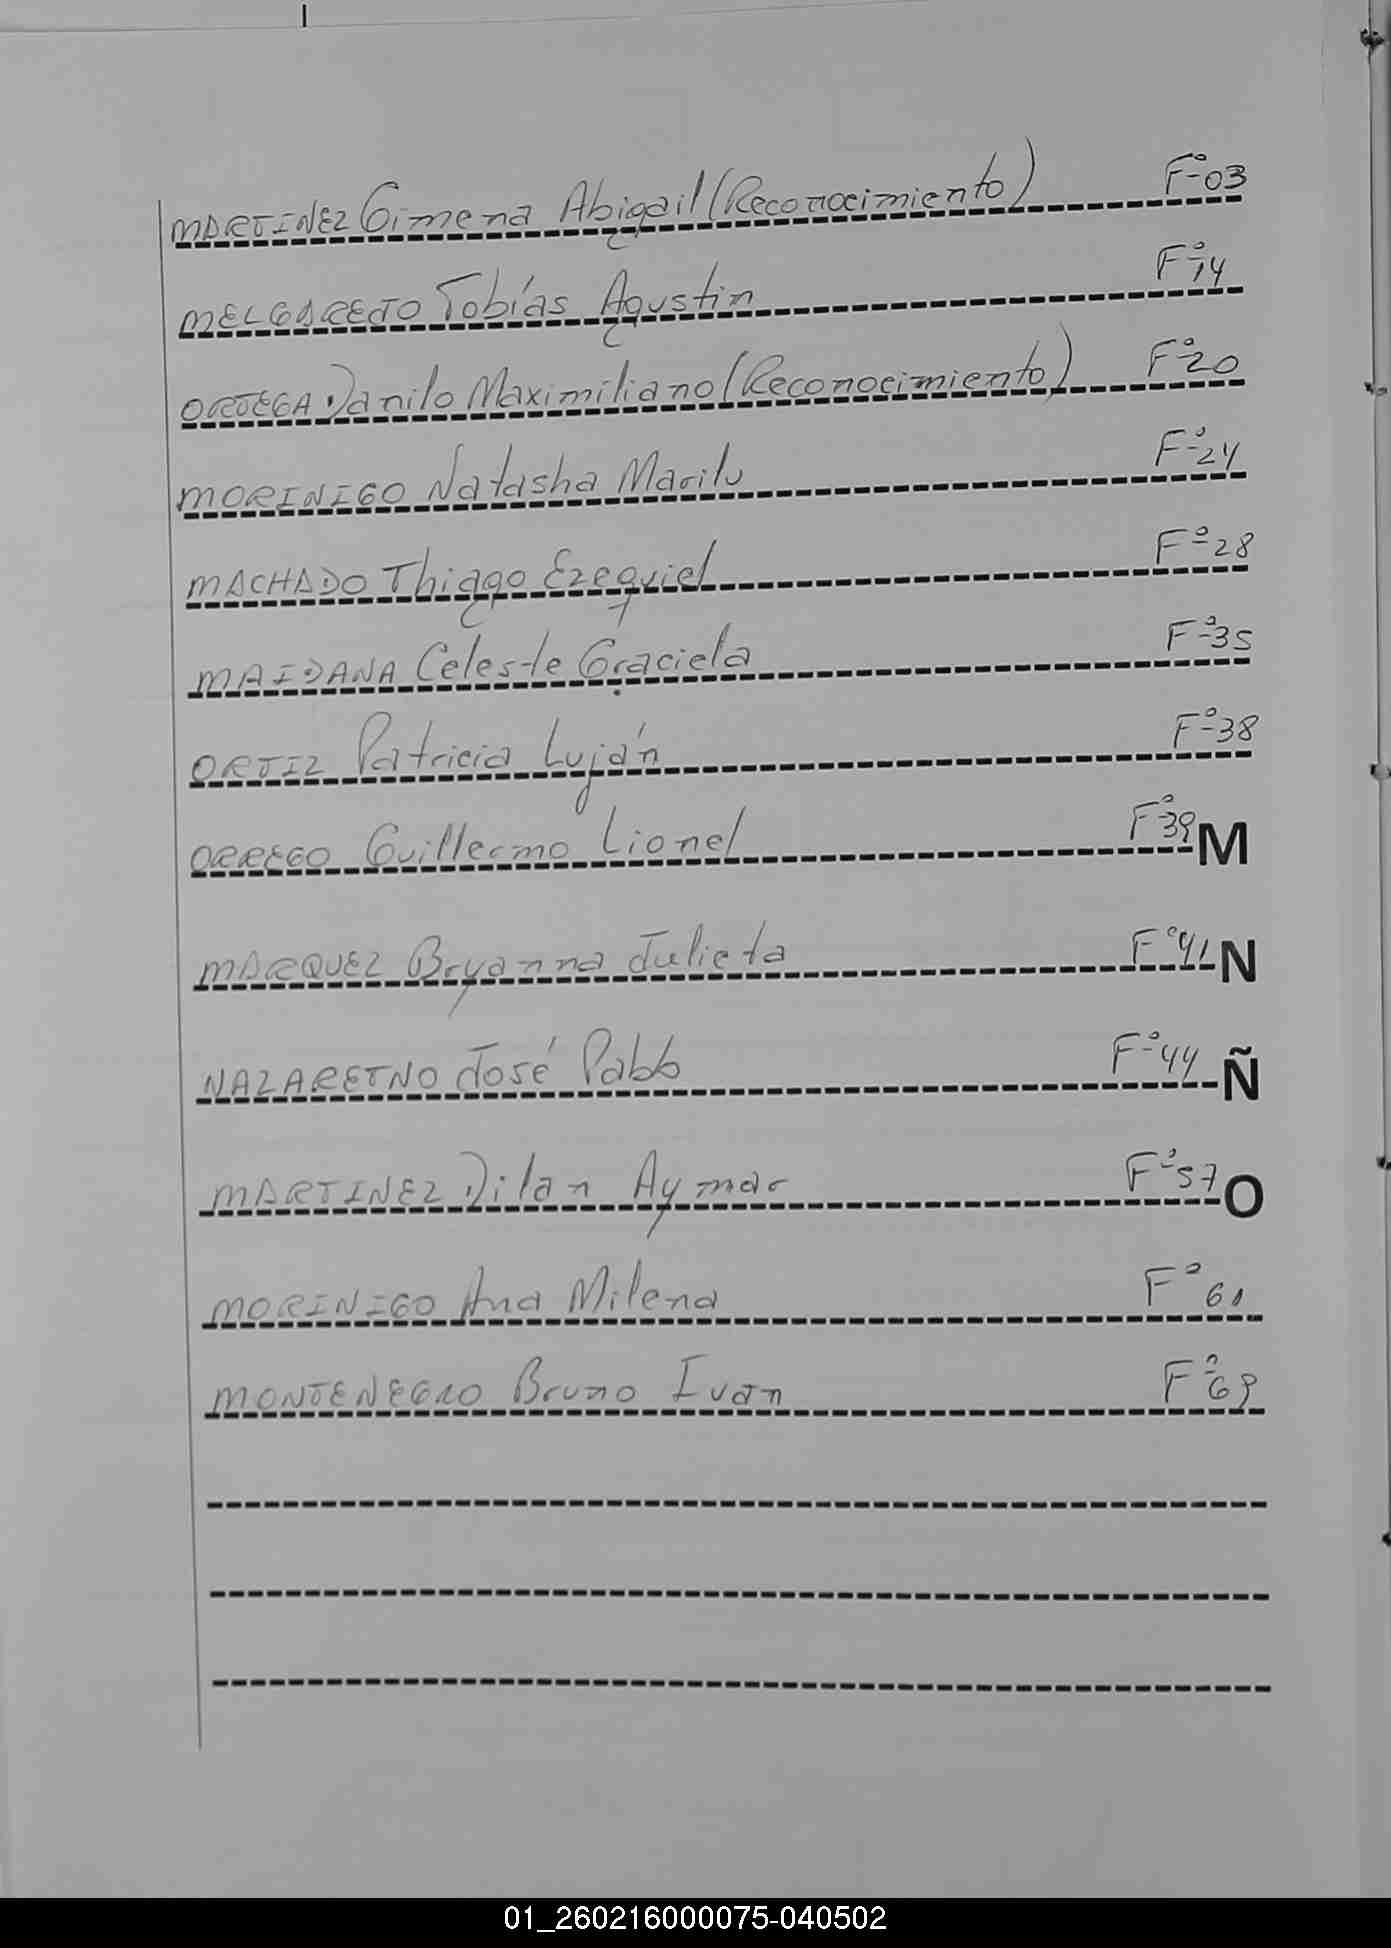 MARTINEZ Gimena Abigail (Reconocimiento) Fº 03
MELGAREJO Tobías Agustin Fº 14
ORTEGA Danilo Maximiliano (Reconocimiento) Fº 20
MORINIGO Natasha Marilu Fº 24
MACHADO Thiago Ezequiel Fº 28
MAIDANA Celeste Graciela Fº 35
ORTIZ Patricia Luján Fº 38
ORREGO Guillermo Lionel Fº 39 M
MARQUEZ Bryanna Julieta Fº 41 N
NAZARETNO José Pablo Fº 44 Ñ
MARTINEZ Dilan Aymar Fº 57 O
MORINIGO Ana Milena Fº 61
MONTENEGRO Bruno Ivan Fº 69
01_260216000075-040502